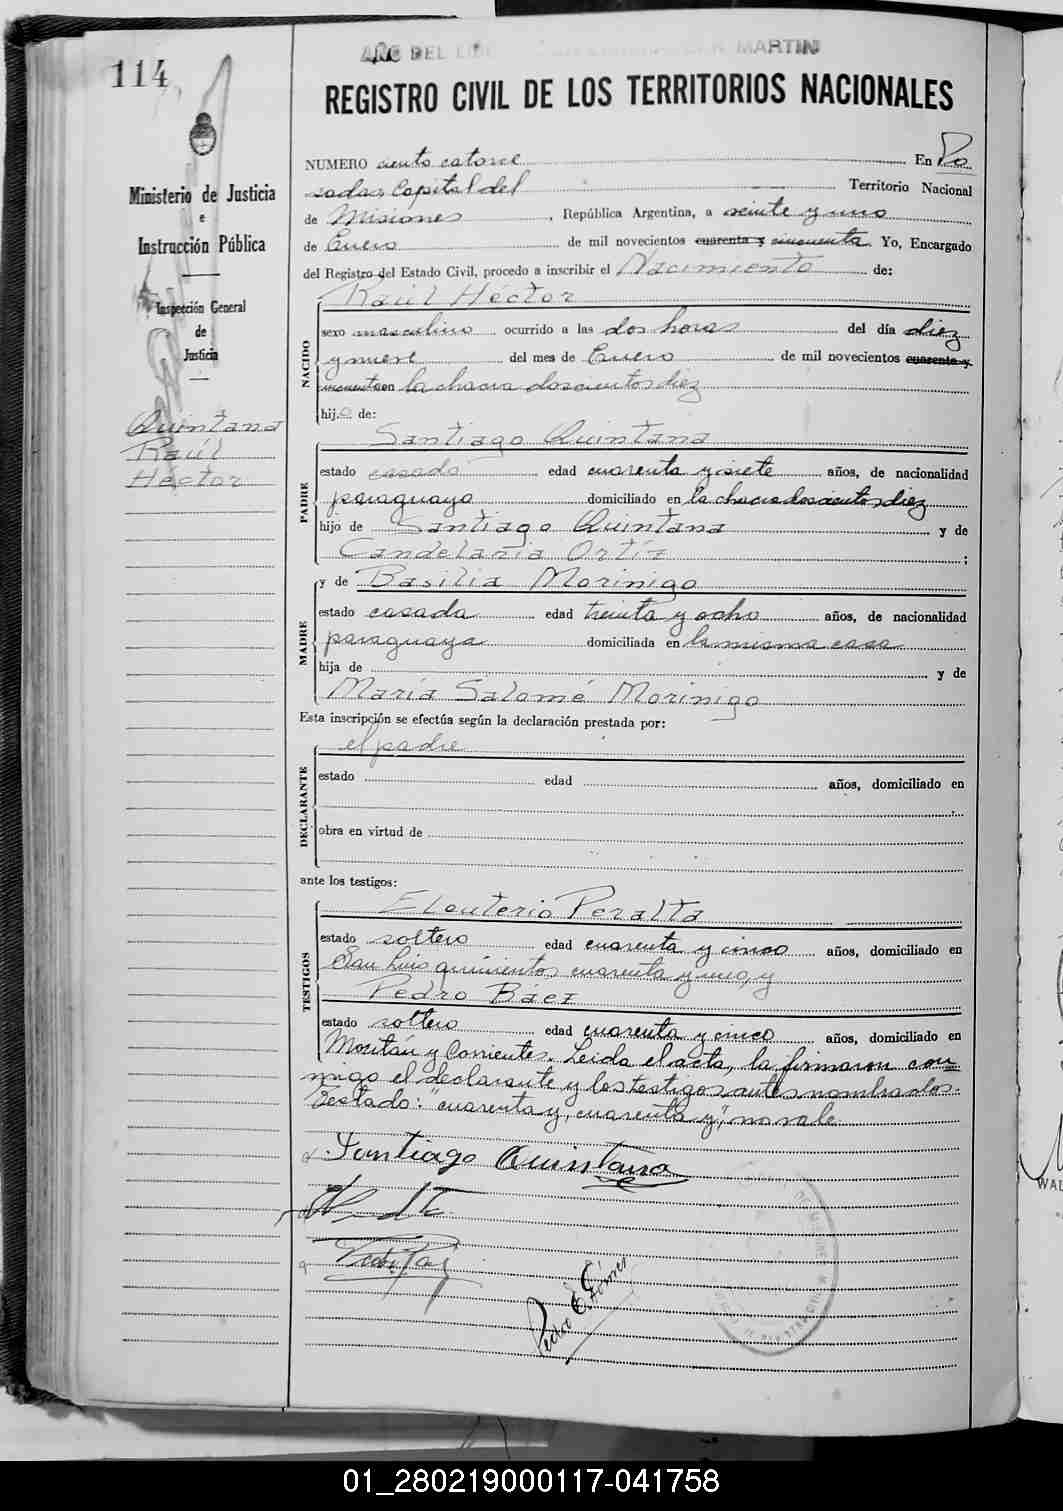 114
AÑO DEL LIBERTADOR GENERAL SAN MARTIN
REGISTRO CIVIL DE LOS TERRITORIOS NACIONALES
Ministerio de Justicia
e
Instrucción Pública
Inspección General
de
Justicia
Quintana
Raúl
Héctor
NUMERO ciento catorce En Po
sadas, Capital del Territorio Nacional
de Misiones, República Argentina, a veinte y uno
de Enero de mil novecientos cuarenta y cincuenta. Yo, Encargado
del Registro del Estado Civil, procedo a inscribir el Nacimiento de:
Raúl Héctor
NACIDO
sexo masculino ocurrido a las dos horas del día diez
y nueve del mes de Enero de mil novecientos cuarenta y
cincuenta en la chacra doscientos diez
hijo de:
Santiago Quintana
PADRE
estado casado edad cuarenta y siete años, de nacionalidad
paraguaya domiciliado en la chacra doscientos diez
hijo de Santiago Quintana y de
Candelaria Ortíz;
MADRE
y de Basilia Morinigo
estado casada edad treinta y ocho años, de nacionalidad
paraguaya domiciliada en la misma casa
hija de y de
María Salomé Morinigo
Esta inscripción se efectúa según la declaración prestada por:
el padre
DECLARANTE
estado edad años, domiciliado en
obra en virtud de
ante los testigos:
Eleuterio Peralta
TESTIGOS
estado soltero edad cuarenta y cinco años, domiciliado en
San Luis quinientos cuarenta y uno, y
Pedro Báez
estado soltero edad cuarenta y cinco años, domiciliado en
Moritán y Corrientes. Leida el acta, la firmaron con
migo el declarante y los testigos antes nombrados.
Testado: "cuarenta y, cuarenta y", no vale
Santiago Quintana
Pedro Báez
Pedro E. Gómez
WAL
01_280219000117-041758